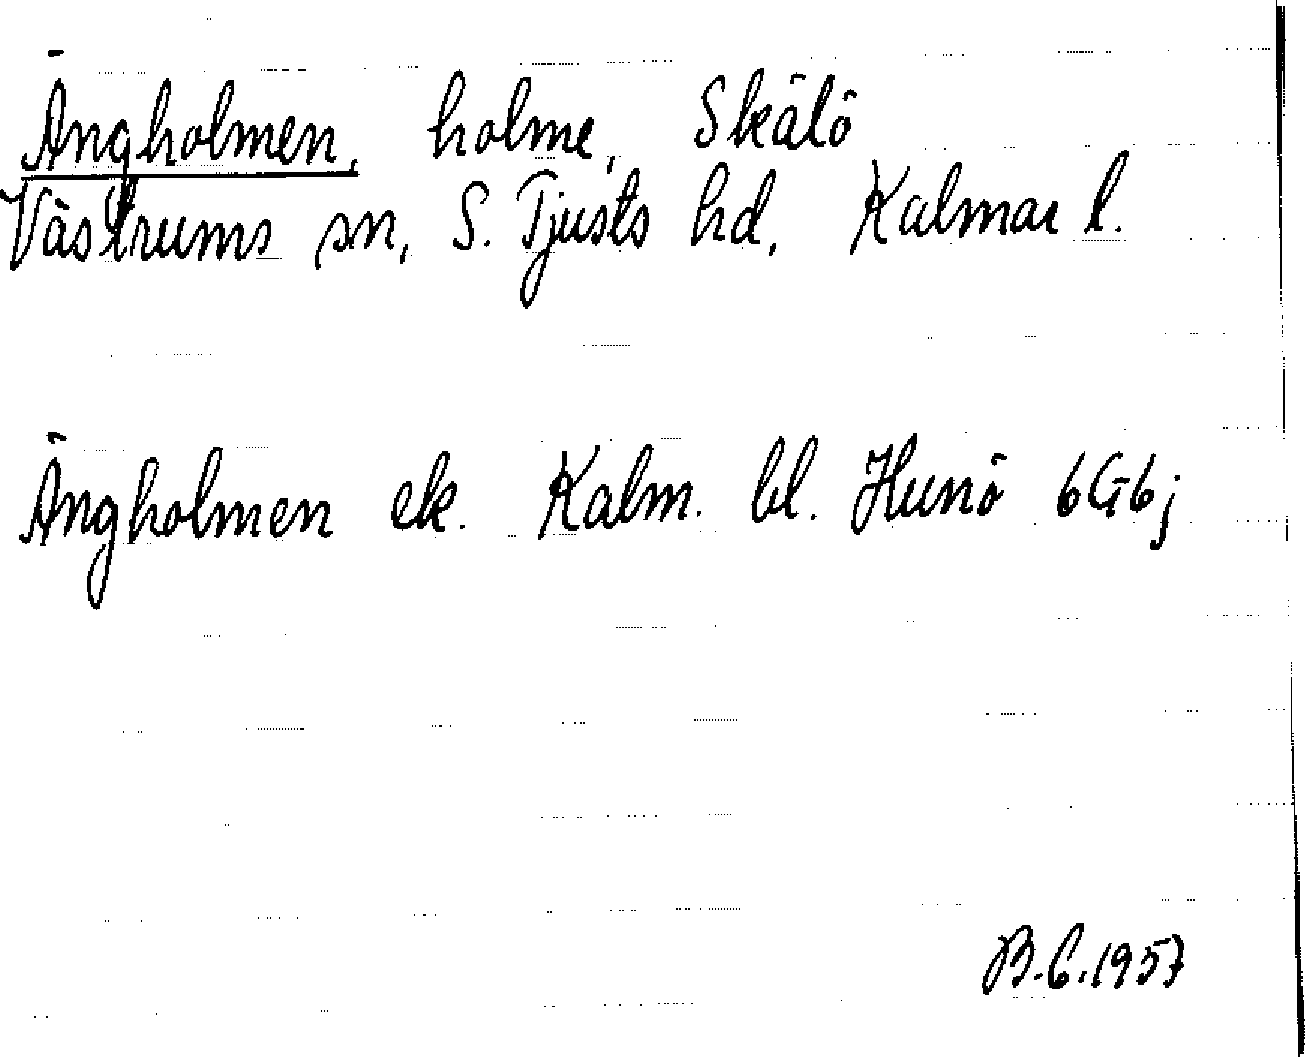 Ängholmen, holme, Skälö
Västrums sn, S. Tjusts hd, Kalmar l.
Ängholmen ek. Kalm. bl. Hunö 6G6j
B.C.1957